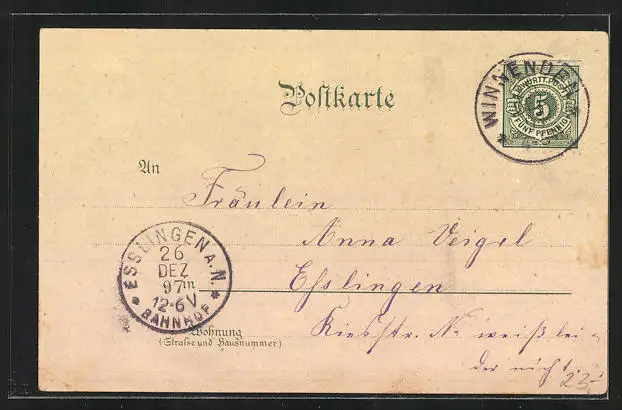 Postkarte
WINNENDEN
K. WÜRTT. POST
5
FÜNF PFENNIG
An
Fräulein
Anna Veigel
Eßlingen
ESSLINGEN A.N.
26
DEZ
97
12-6V
BAHNHOF
Wohnung
(Straße und Hausnummer)
№ weiß lei-
der nicht.
23.-